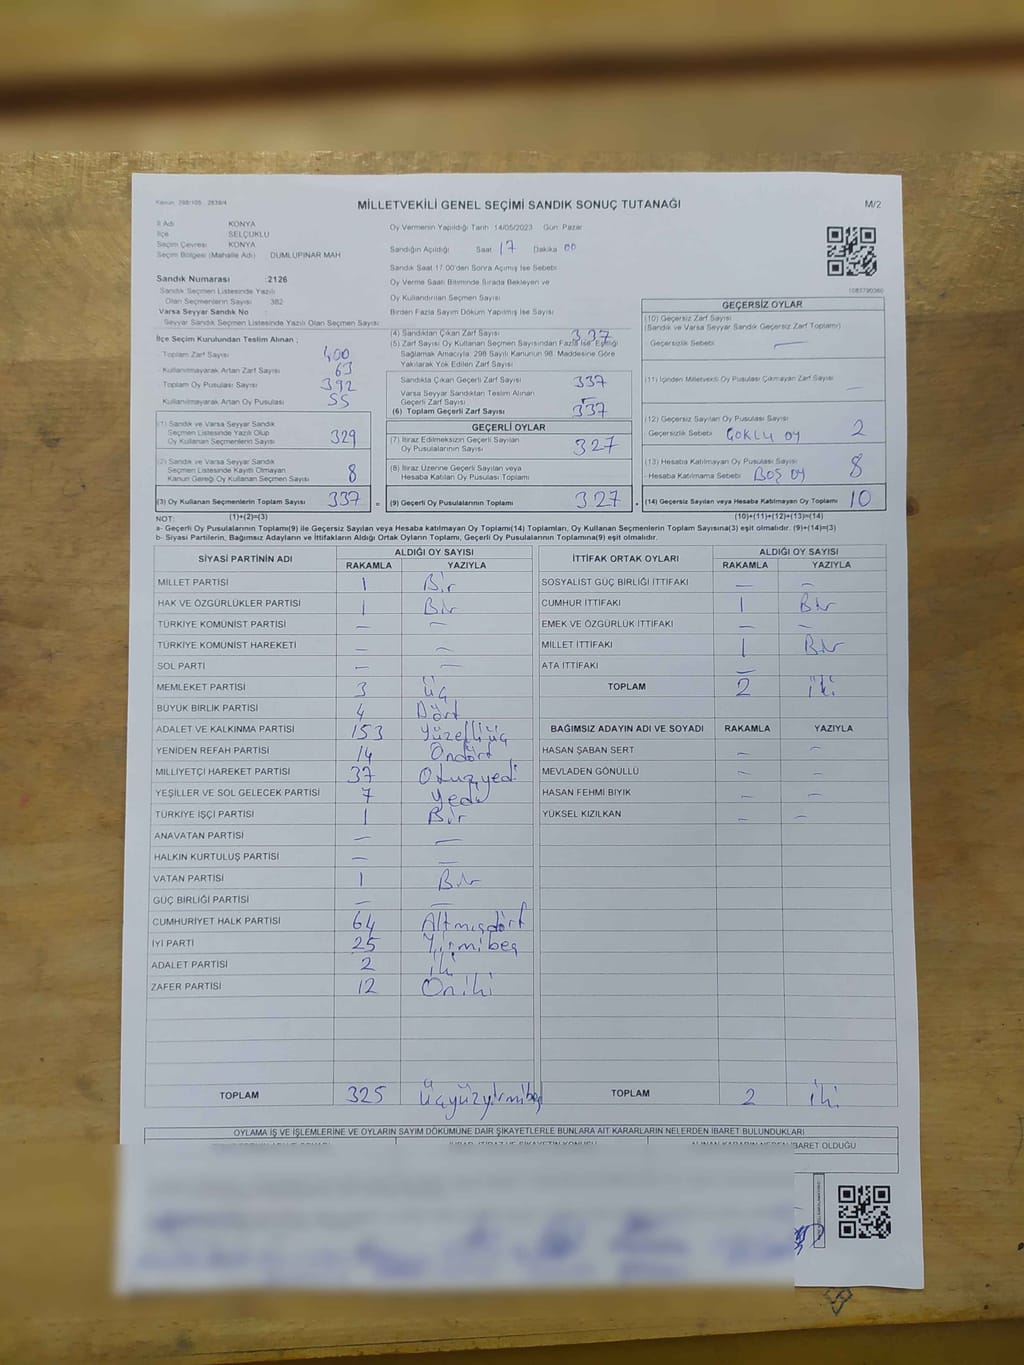 Kanun: 298/105 2839/4
MİLLETVEKİLİ GENEL SEÇİMİ SANDIK SONUÇ TUTANAĞI
M/2
İl Adı KONYA
İlçe SELÇUKLU
Seçim Çevresi KONYA
Seçim Bölgesi (Mahalle Adı) DUMLUPINAR MAH
Sandık Numarası :2126
Sandık Seçmen Listesinde Yazılı
Olan Seçmenlerin Sayısı 382
Varsa Seyyar Sandık No :
Seyyar Sandık Seçmen Listesinde Yazılı Olan Seçmen Sayısı
Oy Vermenin Yapıldığı Tarih 14/05/2023 Gün Pazar
Sandığın Açıldığı Saat 17 Dakika 00
Sandık Saat 17.00'den Sonra Açılmış İse Sebebi
Oy Verme Saati Bitiminde Sırada Bekleyen ve
Oy Kullandırılan Seçmen Sayısı
Birden Fazla Sayım Döküm Yapılmış İse Sayısı
1083790360
İlçe Seçim Kurulundan Teslim Alınan ;
Toplam Zarf Sayısı 400
Kullanılmayarak Artan Zarf Sayısı 63
Toplam Oy Pusulası Sayısı 392
Kullanılmayarak Artan Oy Pusulası 55
(1) Sandık ve Varsa Seyyar Sandık
Seçmen Listesinde Yazılı Olup
Oy Kullanan Seçmenlerin Sayısı 329
(2) Sandık ve Varsa Seyyar Sandık
Seçmen Listesinde Kayıtlı Olmayan
Kanun Gereği Oy Kullanan Seçmen Sayısı 8
(3) Oy Kullanan Seçmenlerin Toplam Sayısı 337 =
(1)+(2)=(3)
(4) Sandıktan Çıkan Zarf Sayısı 337
(5) Zarf Sayısı Oy Kullanan Seçmen Sayısından Fazla İse, Eşitliği
Sağlamak Amacıyla, 298 Sayılı Kanunun 98. Maddesine Göre
Yakılarak Yok Edilen Zarf Sayısı
Sandıkta Çıkan Geçerli Zarf Sayısı 337
Varsa Seyyar Sandıktan Teslim Alınan
Geçerli Zarf Sayısı —
(6) Toplam Geçerli Zarf Sayısı 337
GEÇERLİ OYLAR
(7) İtiraz Edilmeksizin Geçerli Sayılan
Oy Pusulalarının Sayısı 327
(8) İtiraz Üzerine Geçerli Sayılan veya
Hesaba Katılan Oy Pusulası Toplamı
(9) Geçerli Oy Pusulalarının Toplamı 327 +
GEÇERSİZ OYLAR
(10) Geçersiz Zarf Sayısı
(Sandık ve Varsa Seyyar Sandık Geçersiz Zarf Toplamı)
Geçersizlik Sebebi —
(11) İçinden Milletvekili Oy Pusulası Çıkmayan Zarf Sayısı —
(12) Geçersiz Sayılan Oy Pusulası Sayısı
Geçersizlik Sebebi ÇOKLU OY 2
(13) Hesaba Katılmayan Oy Pusulası Sayısı
Hesaba Katılmama Sebebi BOŞ OY 8
(14) Geçersiz Sayılan veya Hesaba Katılmayan Oy Toplamı 10
(10)+(11)+(12)+(13)=(14)
NOT:
a- Geçerli Oy Pusulalarının Toplamı(9) ile Geçersiz Sayılan veya Hesaba katılmayan Oy Toplamı(14) Toplamları, Oy Kullanan Seçmenlerin Toplam Sayısına(3) eşit olmalıdır. (9)+(14)=(3)
b- Siyasi Partilerin, Bağımsız Adayların ve İttifakların Aldığı Ortak Oyların Toplamı, Geçerli Oy Pusulalarının Toplamına(9) eşit olmalıdır.
SİYASİ PARTİNİN ADI ALDIĞI OY SAYISI
RAKAMLA YAZIYLA
MİLLET PARTİSİ 1 Bir
HAK VE ÖZGÜRLÜKLER PARTİSİ 1 Bir
TÜRKİYE KOMÜNİST PARTİSİ — —
TÜRKİYE KOMÜNİST HAREKETİ — —
SOL PARTİ — —
MEMLEKET PARTİSİ 3 Üç
BÜYÜK BİRLİK PARTİSİ 4 Dört
ADALET VE KALKINMA PARTİSİ 153 Yüzelliüç
YENİDEN REFAH PARTİSİ 14 Ondört
MİLLİYETÇİ HAREKET PARTİSİ 37 Otuzyedi
YEŞİLLER VE SOL GELECEK PARTİSİ 7 Yedi
TÜRKİYE İŞÇİ PARTİSİ 1 Bir
ANAVATAN PARTİSİ — —
HALKIN KURTULUŞ PARTİSİ — —
VATAN PARTİSİ 1 Bir
GÜÇ BİRLİĞİ PARTİSİ — —
CUMHURİYET HALK PARTİSİ 64 Altmışdört
İYİ PARTİ 25 Yirmibeş
ADALET PARTİSİ 2 İki
ZAFER PARTİSİ 12 Oniki
TOPLAM 325 Üçyüzyirmibeş
İTTİFAK ORTAK OYLARI ALDIĞI OY SAYISI
RAKAMLA YAZIYLA
SOSYALİST GÜÇ BİRLİĞİ İTTİFAKI — —
CUMHUR İTTİFAKI 1 Bir
EMEK VE ÖZGÜRLÜK İTTİFAKI — —
MİLLET İTTİFAKI 1 Bir
ATA İTTİFAKI —
TOPLAM 2 İki
BAĞIMSIZ ADAYIN ADI VE SOYADI RAKAMLA YAZIYLA
HASAN ŞABAN SERT — —
MEVLADEN GÖNÜLLÜ — —
HASAN FEHMİ BIYIK — —
YÜKSEL KIZILKAN — —
TOPLAM 2 İki
OYLAMA İŞ VE İŞLEMLERİNE VE OYLARIN SAYIM DÖKÜMÜNE DAİR ŞİKAYETLERLE BUNLARA AİT KARARLARIN NELERDEN İBARET BULUNDUKLARI
ALINAN KARARIN NEDEN İBARET OLDUĞU